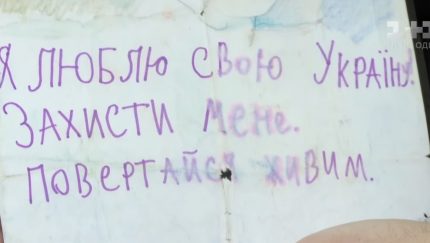 Я ЛЮБЛЮ СВОЮ УКРАЇНУ!
ЗАХИСТИ МЕНЕ.
ПОВЕРТАЙСЯ ЖИВИМ.